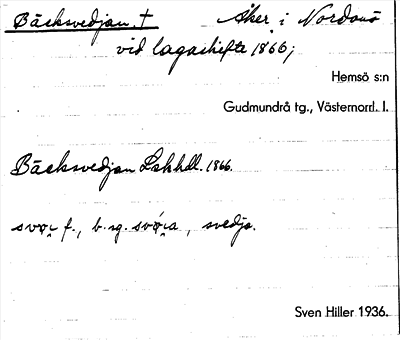 Bäcksvedjan † Åker i Nordanö
vid lagaskifte 1866;
Hemsö s:n
Gudmundrå tg., Västernorrl. l.
Bäcksvedjan Lskhdl. 1866.
f., b. sg. , svedja.
Sven Hiller 1936.